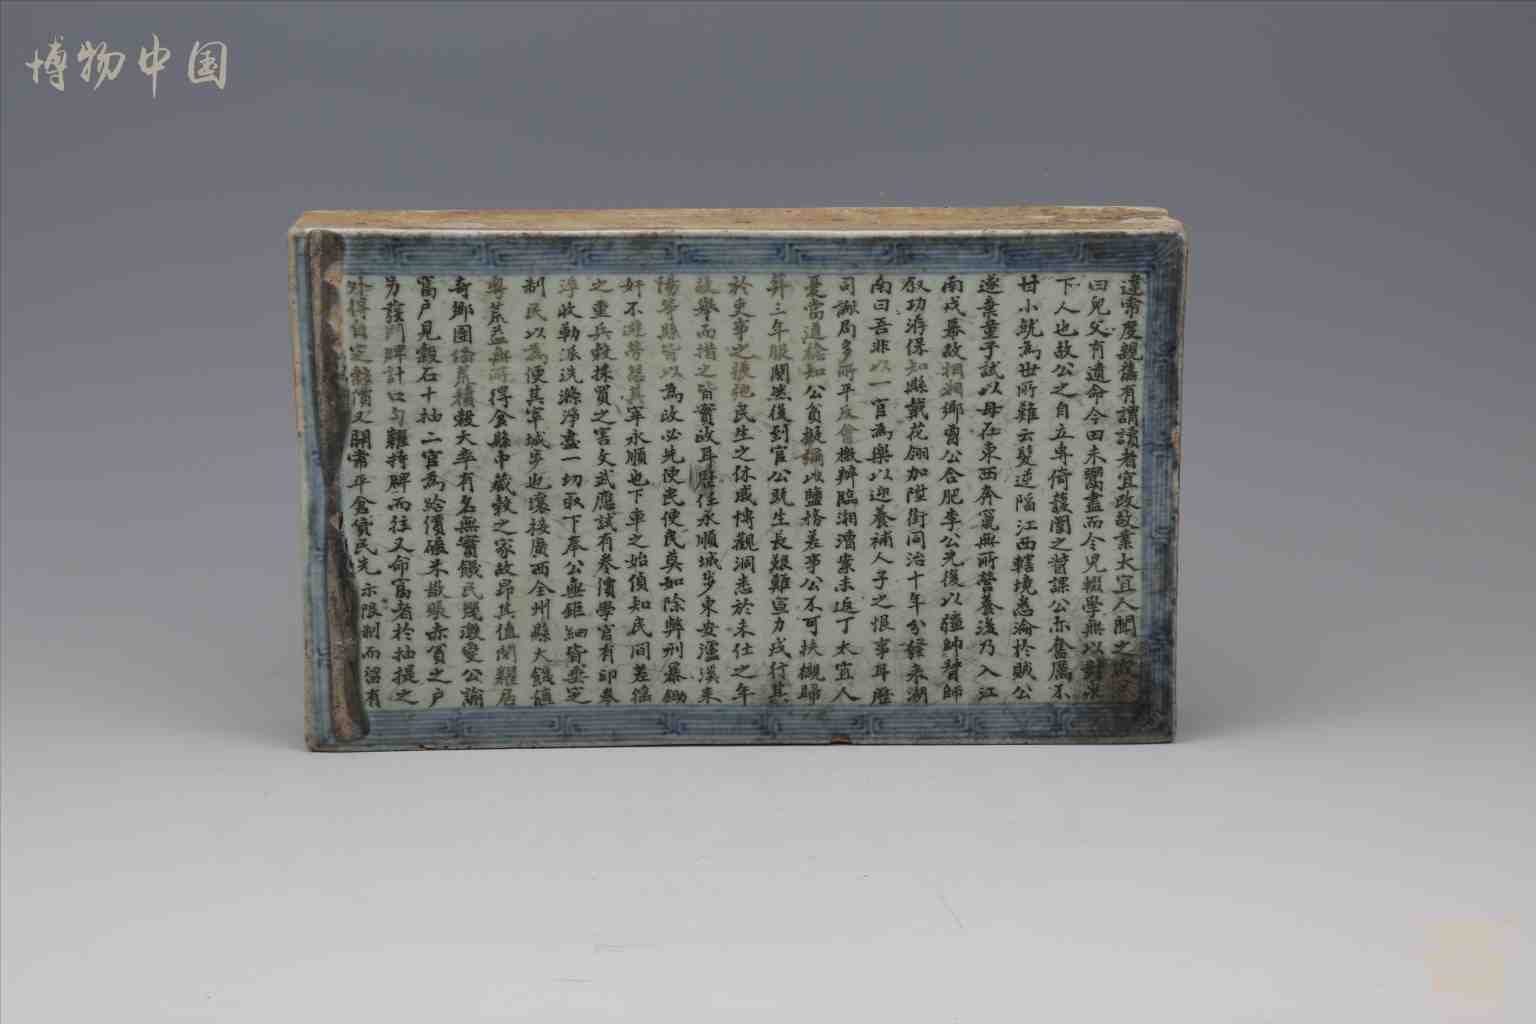 博物中国
違常度親舊有謂讀者宜改故業太宜人聞之
曰兒父有遺命今田未鬻盡而令兒輟學無以對
下人也故公之自立專倚護闈之督課公亦奮厲不
甘小就為世所難云髮逆陷江西轄境悉淪於賊公
遂棄童子試以母在東西奔竄無所營養後乃入江
南戎幕故相湘鄉曹公合肥李公先後以疆帥督師
叙功洊保知縣戴花翎加陞銜同治十年分發來湖
南曰吾非以一官為樂以迎養補人子之恨事耳歷
司讞局多所平反會檄辦臨湘漕案未返丁太宜人
憂當道稔知公貧擬以鹽務差事公不可扶櫬歸
葬三年服闋然後到官公既生長艱難宣力戎行其
於吏事之張弛民生之休戚博觀洞悉於未仕之年
故舉而措之皆實政耳歷任永順城步東安瀘溪耒
陽等縣皆以為政必先使民便民莫如除弊刑暴鋤
奸不避勞怨其宰永順也下車之始偵知民間差徭
之重兵穀採買之害文武應試有參價學官有印卷
浮收勒派洗滌淨盡一切取下奉公無鉅細皆垂定
制民以為便其宰城步也壤接廣西全州縣大饑值
與荒益無所得全縣市藏穀之家故昂其值閉糶居
奇鄉團備荒積穀大率有名無實饑民幾激變公諭
富戶見穀石十抽二官為給價碾米散賑赤貧之戶
另發門牌計口勻糶持牌而往又命富者於抽提之
外得自定穀價又開常平倉貸民先示限制而留有